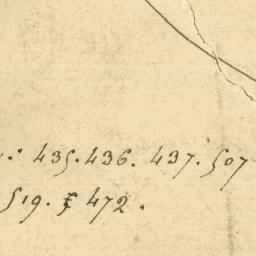 435. 436. 437. 507
519. & 472.